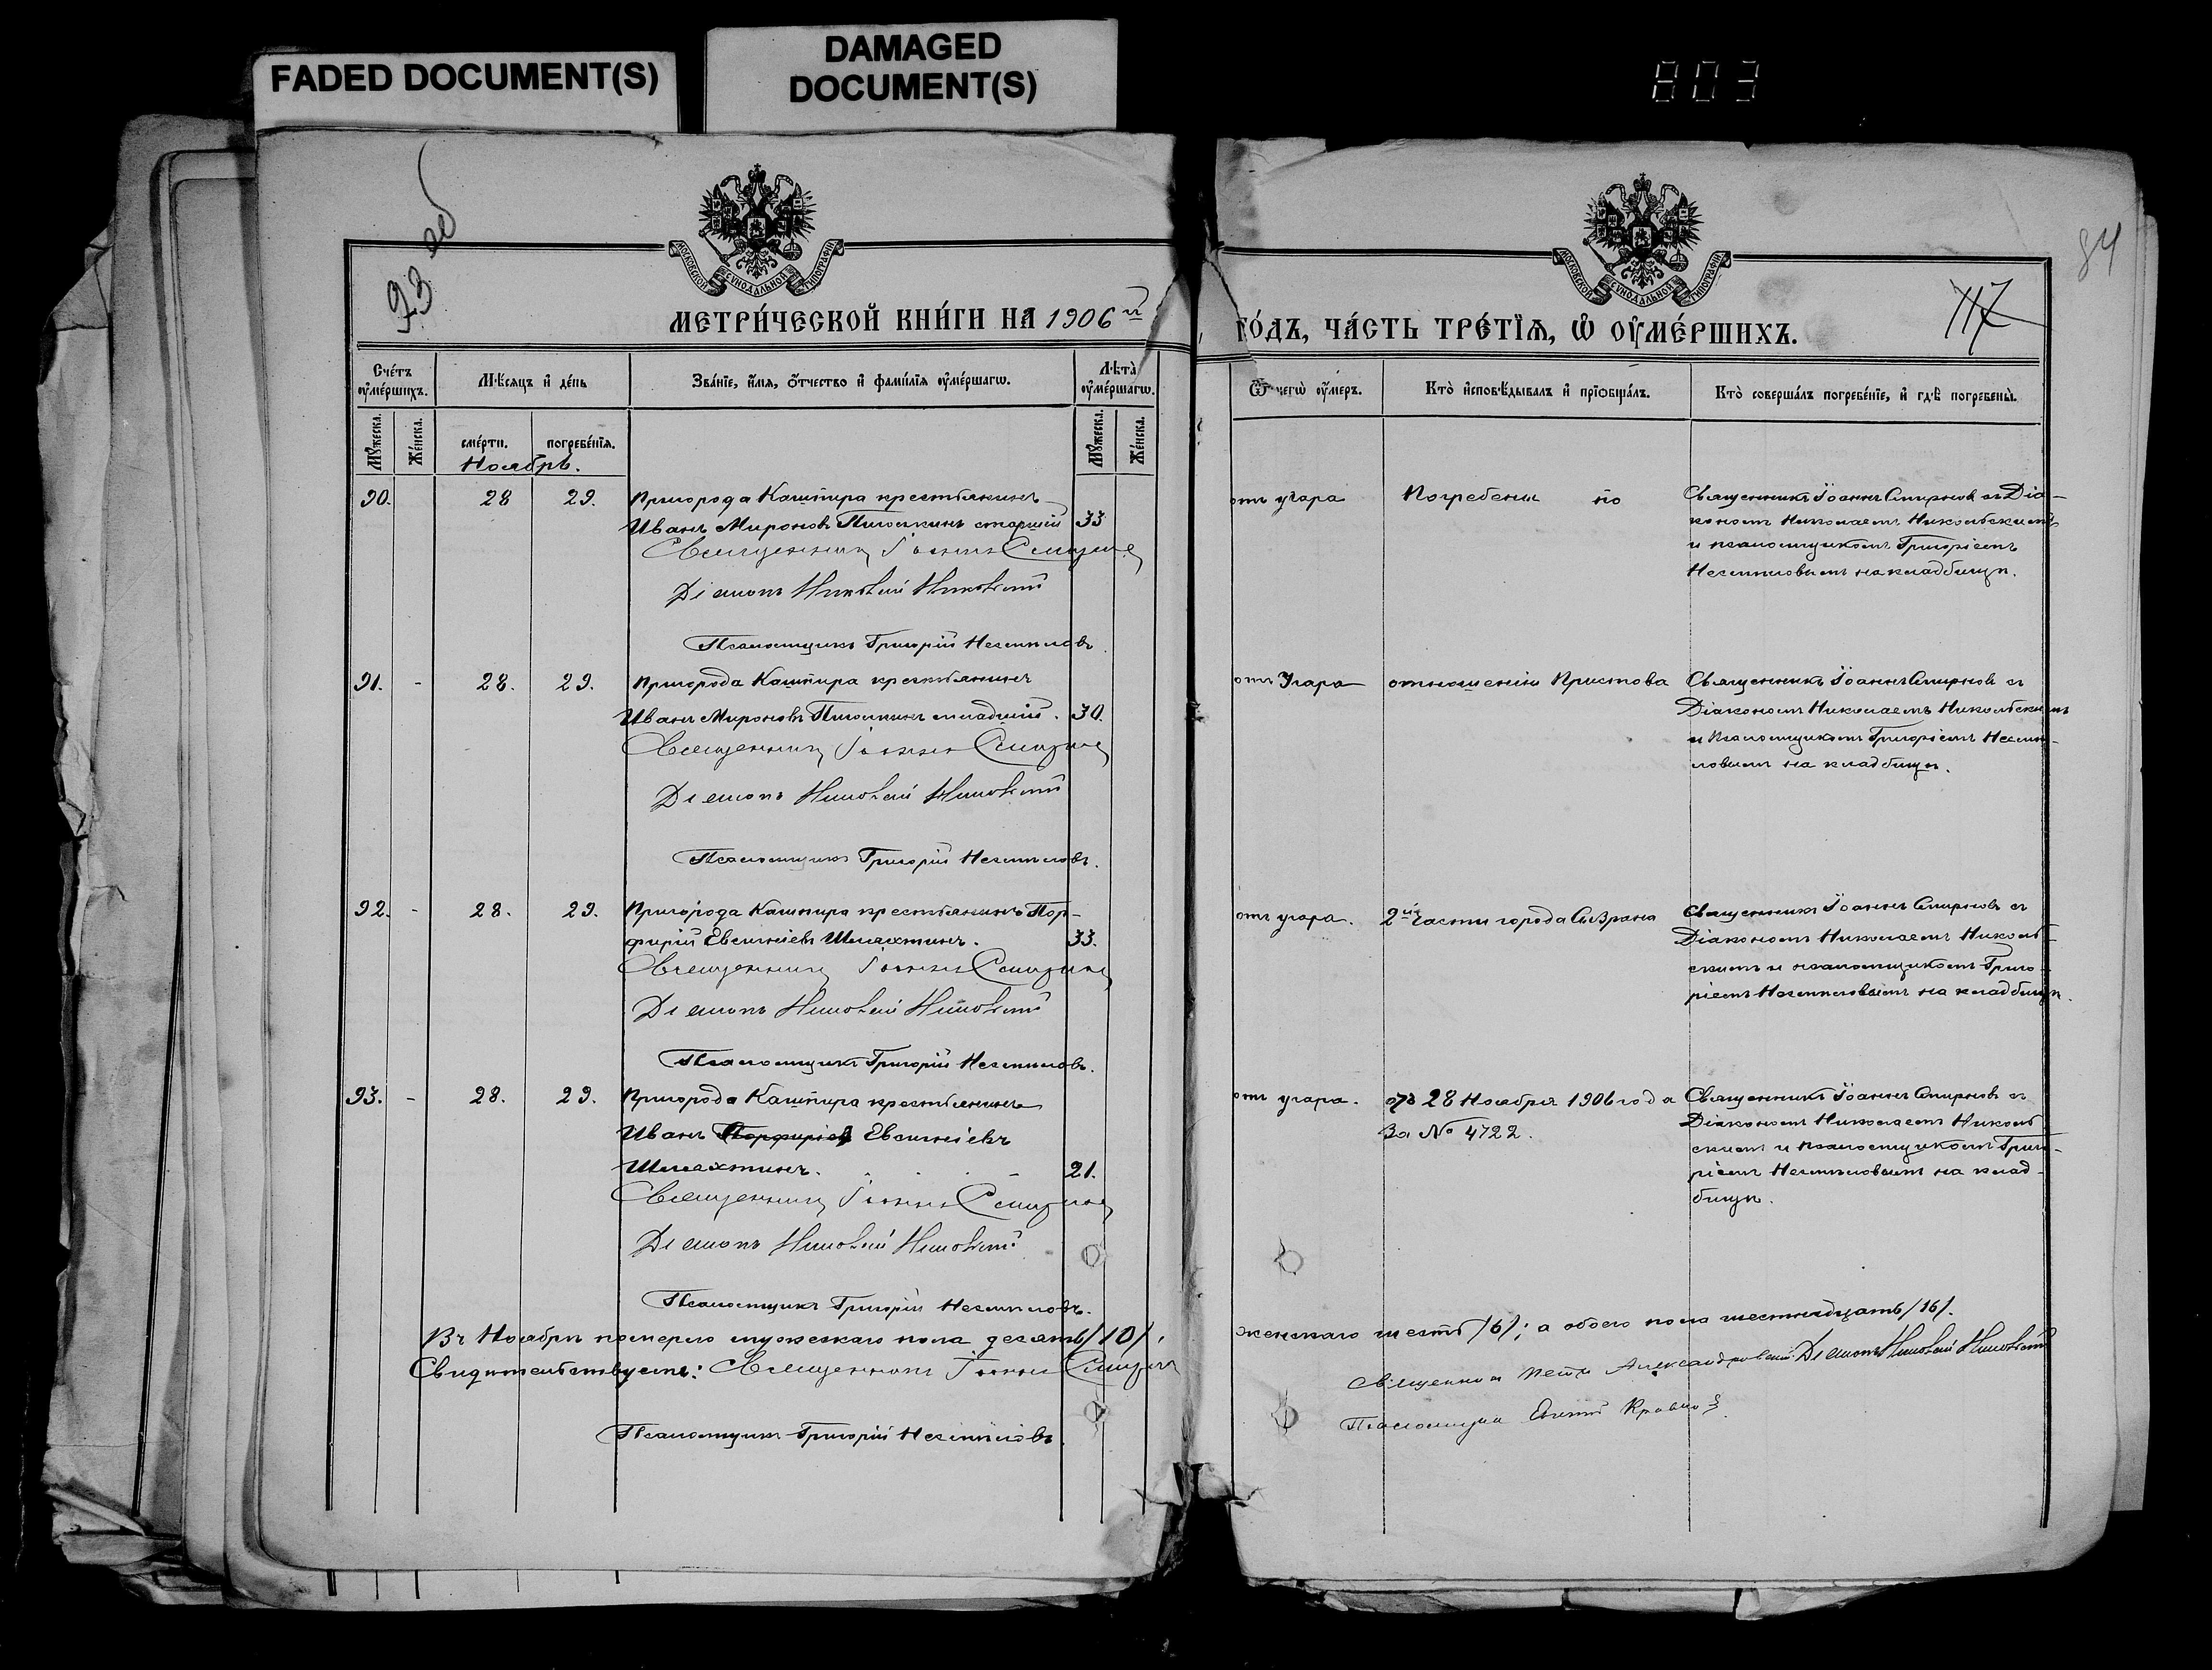 FADED DOCUMENT(S)
DAMAGED
DOCUMENT(S)
803
93 об
84
117
МОСКОВСКОЙ СѴНОДАЛЬНОЙ ТИПОГРАФІИ
МОСКОВСКОЙ СѴНОДАЛЬНОЙ ТИПОГРАФІИ
МЕТРИ́ЧЕСКОЙ КНИ́ГИ НА 1906 й
ГО́ДЪ, ЧА́СТЬ ТРЕ́ТЇѦ, Ѡ҆ ОУ҆МЕ́РШИХЪ.
Сче́тъ оу҆ме́ршихъ.
Мѣ́сяцъ и҆ де́нь
Зва́нїе, и҆́мя, о҆́тчество и҆ фами́лїя оу҆ме́ршагѡ.
Лѣта̀ оу҆ме́ршагѡ.
Ѿ чегѡ̀ оу҆́меръ.
Кто̀ и҆сповѣ́дывалъ и҆ прїѡбща́лъ.
Кто̀ соверша́лъ погребе́нїе, и҆ гдѣ̀ погребены̀.
Мꙋ́жеска.
Же́нска.
сме́рти.
погребе́нїя.
Мꙋ́жеска.
Же́нска.
Ноябрь.
90. 28 29. Пригорода Кашпира крестьянинъ
Иванъ Мироновъ Пилюгинъ старшій 33
Священникъ Іоаннъ Смирновъ
Діаконъ Николай Никольскій
Псаломщикъ Григорій Несмѣловъ
отъ угара Погребены по
Священникъ Іоаннъ Смирновъ съ Діа-
кономъ Николаемъ Никольскимъ
и псаломщикомъ Григоріемъ
Несмѣловымъ на кладбищѣ.
91. - 28. 29. Пригорода Кашпира крестьянинъ
Иванъ Мироновъ младшій. 30.
Священникъ Іоаннъ Смирновъ
Діаконъ Николай Никольскій
Псаломщикъ Григорій Несмѣловъ.
отъ Угара отношенію Пристова
Священникъ Іоаннъ Смирновъ съ
Діакономъ Николаемъ Никольскимъ
и Псаломщикомъ Григоріемъ Несмѣ-
ловымъ на кладбищѣ.
92. - 28. 29. Пригорода Кашпира крестьянинъ Пор-
фирій Евсигніевъ Шмахтинъ. 33.
Священникъ Іоаннъ Смирновъ
Діаконъ Николай Никольскій
Псаломщикъ Григорій Несмѣловъ.
отъ угара. 2ой части города Сызрана
Священникъ Іоаннъ Смирновъ съ
Діакономъ Николаемъ Николь-
скимъ и псаломщикомъ Григо-
ріемъ Несмѣловымъ на кладбищѣ.
93. - 28. 29. Пригорода Кашпира крестьянинъ
Иванъ Порфиріев Евсигніевъ
Шмахтинъ. 21.
Священникъ Іоаннъ Смирновъ
Діаконъ Николай Никольскій
Псаломщикъ Григорій Несмѣловъ.
отъ угара. отъ 28 Ноября 1906 года
За № 4722.
Священникъ Іоаннъ Смирновъ съ
Діакономъ Николаемъ Николь
скимъ и псаломщикомъ Григо-
ріемъ Несмѣловымъ на клад-
бищѣ.
Въ Ноябрѣ померло мужескаго пола десять /10/, женскаго шесть /6/; а обоего пола шестнадцать /16/.
Свидѣтельствуемъ: Священникъ Іоаннъ Смирновъ
Священникъ Петръ Александровскій Діаконъ Николай Никольскій
Псаломщикъ Григорій Несмѣловъ
Псаломщикъ